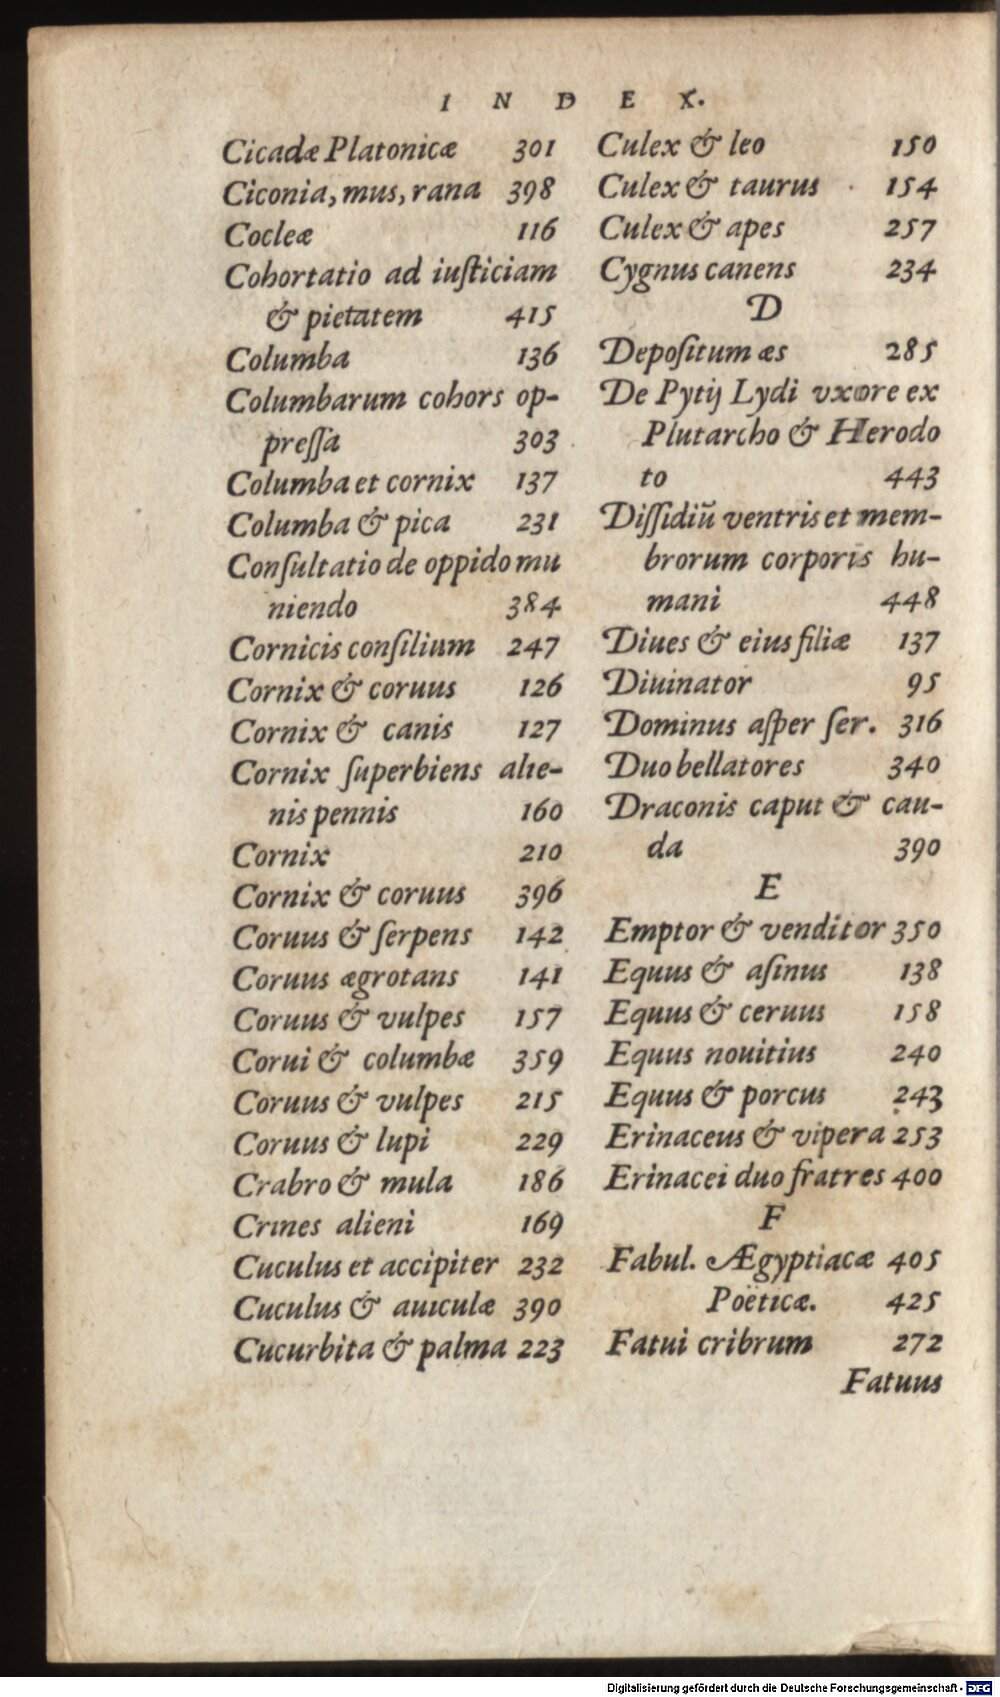 INDEX.
Cicadæ Platonicæ 301
Ciconia, mus, rana 398
Cocleæ 116
Cohortatio ad iuſticiam
& pietatem 415
Columba 136
Columbarum cohors op-
preſſa 303
Columba et cornix 137
Columba & pica 231
Conſultatio de oppido mu
niendo 384
Cornicis conſilium 247
Cornix & coruus 126
Cornix & canis 127
Cornix ſuperbiens alie-
nis pennis 160
Cornix 210
Cornix & coruus 396
Coruus & ſerpens 142
Coruus ægrotans 141
Coruus & vulpes 157
Corui & columbæ 359
Coruus & vulpes 215
Coruus & lupi 229
Crabro & mula 186
Crines alieni 169
Cuculus et accipiter 232
Cuculus & auiculæ 390
Cucurbita & palma 223
Culex & leo 150
Culex & taurus 154
Culex & apes 257
Cygnus canens 234
D
Depoſitum æs 285
De Pytij Lydi vxore ex
Plutarcho & Herodo
to 443
Diſſidiū ventris et mem-
brorum corporis hu-
mani 448
Diues & eius filiæ 137
Diuinator 95
Dominus aſper ſer. 316
Duo bellatores 340
Draconis caput & cau-
da 390
E
Emptor & venditor 350
Equus & aſinus 138
Equus & ceruus 158
Equus nouitius 240
Equus & porcus 243
Erinaceus & vipera 253
Erinacei duo fratres 400
F
Fabul. Ægyptiacæ 405
Poëticæ. 425
Fatui cribrum 272
Fatuus
Digitalisierung gefördert durch die Deutsche Forschungsgemeinschaft - DFG